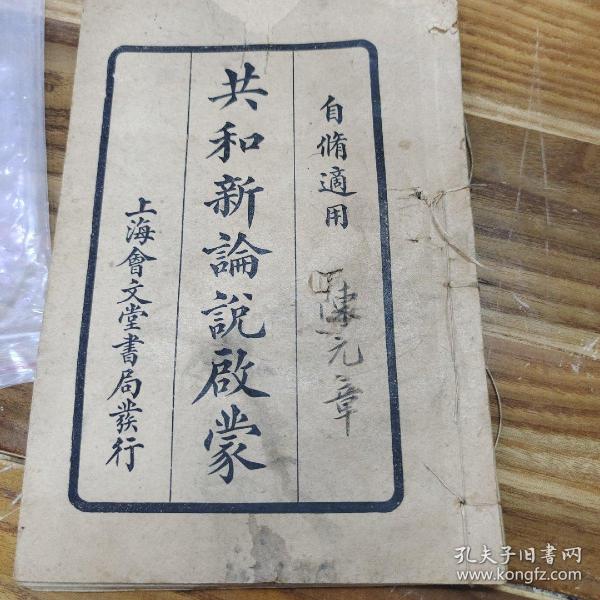 自脩適用
陳元章
共和新論說啟蒙
上海會文堂書局發行
孔夫子旧书网
www.kongfz.com